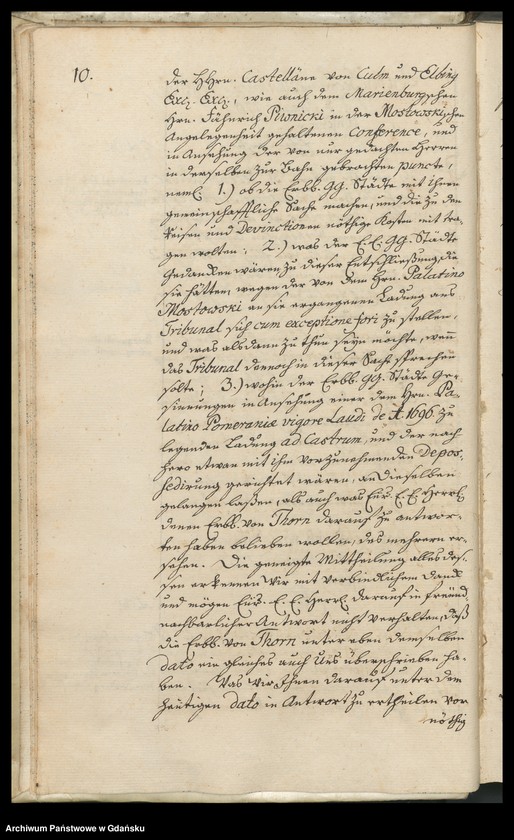 10.
der HHrn. Castelläne von Culm und Elbing
Exc. Exc., wie auch dem Marienburgschen
Hrn. Fähnrich Piwnicki in der Mostowskischen
Angelegenheit gehaltenen Conference, und
in Ansehung der von nur gedachten Herren
in derselben zur Bahn gebrachten puncte,
neml. 1.) ob die Erbb. gg. Städte mit ihnen
gemeinschafftliche Sache machen, und die zu den
Reisen und Devinctionen nöthige Kosten mit tra-
gen wolten; 2.) was der E. E. gg. Städte
Gedancken wären, zu dieser Entschließung, die
sie hätten, wegen der von dem Hrn. Palatino
Mostowski an sie ergangenen Ladung ans
Tribunal sich cum exceptione fori zu stellen,
und was alsdann zu thun seyn möchte, wenn
das Tribunal dennoch in dieser Sache sprechen
solte; 3.) wohin der Erbb. gg. Städte Ge-
sinnungen in Ansehung einer dem Hrn. Pa-
latino Pomeraniæ vigore Laudi de A. 1696 zu
legenden Ladung ad Castrum, und der nach-
hero etwan mit ihm vorzunehmenden Depos-
sedirung gerichtet wären, an Dieselben
gelangen laßen, als auch was Eür. E. E. Herrl.
denen Erbb. von Thorn darauf zu antwor-
ten haben belieben wollen, des mehrern er-
sehen. Die geneigte Mittheilung alles des-
sen erkennen Wir mit verbindlichem Danck
und mögen Eür. E. E. Herrl. darauf in freünd-
nachbarlicher Antwort nicht verhalten, daß
die Erbb. von Thorn unter eben demselben
dato ein gleiches auch Uns überschrieben ha-
ben. Was Wir Ihnen darauf unter dem
heutigen dato in Antwort zu ertheilen vor
nöthig
Archiwum Państwowe w Gdańsku